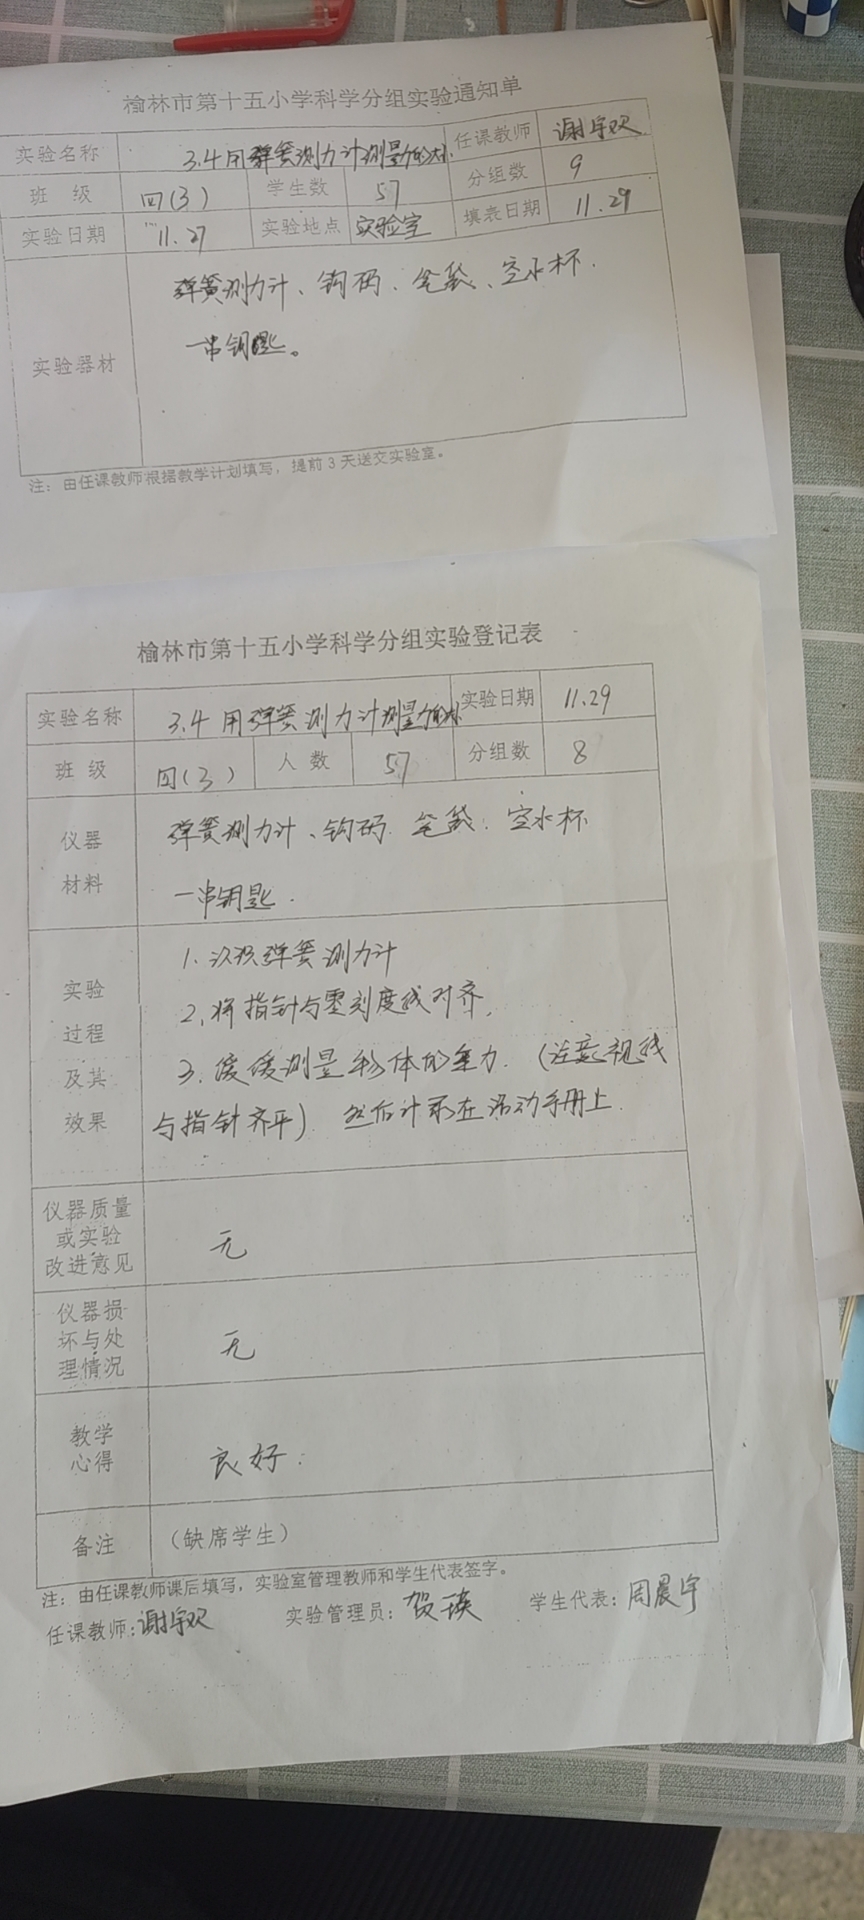 榆林市第十五小学科学分组实验通知单
实验名称 3.4用弹簧测力计测量力的大小 任课教师 谢宇欢
班 级 四(3) 学生数 57 分组数 9
实验日期 11.27 实验地点 实验室 填表日期 11.29
实验器材 弹簧测力计、钩码、笔袋、空水杯.
一串钥匙。
注：由任课教师根据教学计划填写，提前3天送交实验室。
榆林市第十五小学科学分组实验登记表
实验名称 3.4 用弹簧测力计测量力的大小 实验日期 11.29
班 级 四(3) 人 数 57 分组数 8
仪器
材料
弹簧测力计、钩码. 笔袋. 空水杯
一串钥匙.
实验
过程
及其
效果
1.认识弹簧测力计
2.将指针与零刻度线对齐.
3.缓缓测量物体的重力.(注意视线
与指针齐平) 然后计录在活动手册上.
仪器质量
或实验
改进意见
无
仪器损
坏与处
理情况
无
教学
心得
良好.
备注 （缺席学生）
注：由任课教师课后填写，实验室管理教师和学生代表签字。
任课教师：谢宇欢 实验管理员：贺瑛 学生代表：周晨宇